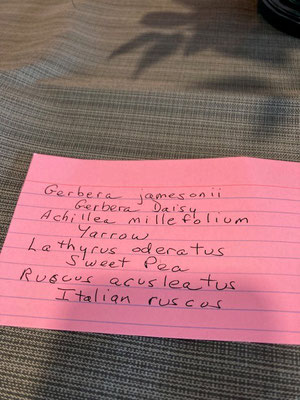 Gerbera jamesonii
Gerbera Daisy
Achillea millefolium
Yarrow
Lathyrus oderatus
Sweet Pea
Ruscus acusleatus
Italian ruscos